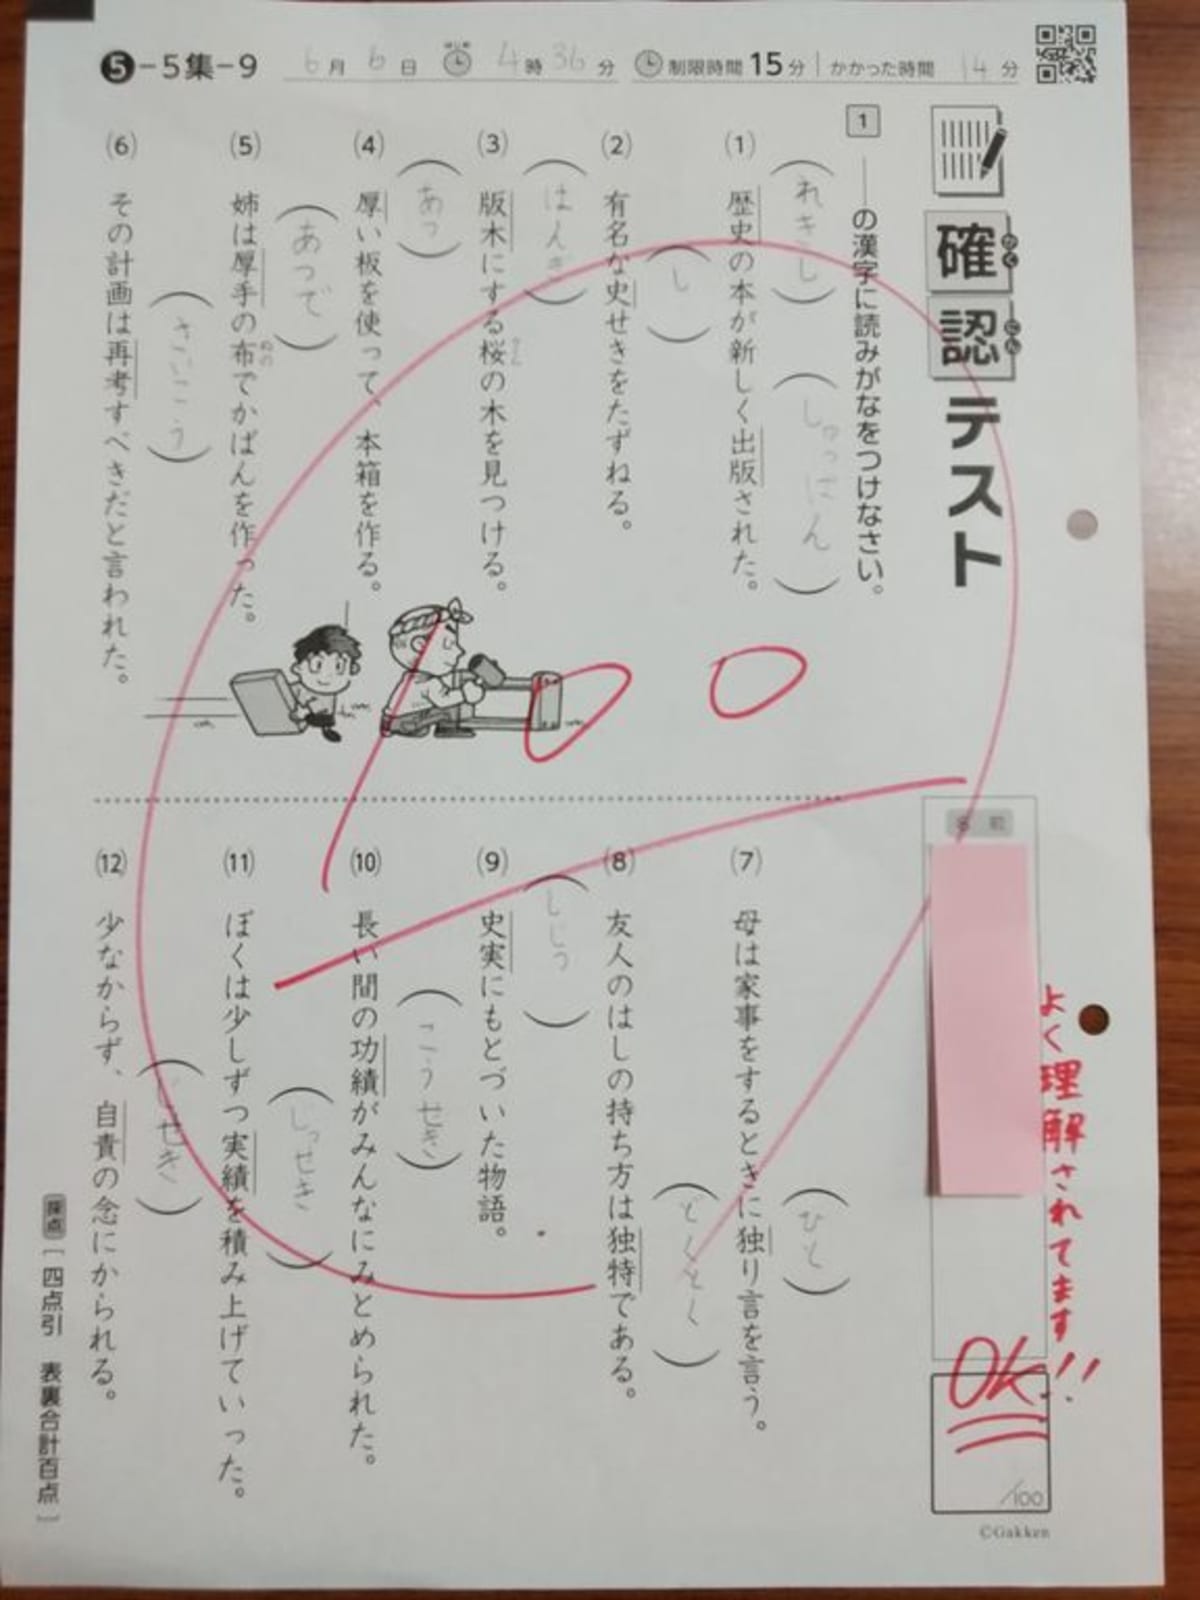 5-5集-9 6月6日 4時36分 制限時間15分 かかった時間 14分
確認テスト
かく
にん
1 ——の漢字に読みがなをつけなさい。
(1) 歴史の本が新しく出版された。
れきし
しゅっぱん
(2) 有名な史せきをたずねる。
し
(3) 版木にする桜の木を見つける。
はんぎ
(4) 厚い板を使って、本箱を作る。
あつ
(5) 姉は厚手の布でかばんを作った。
あつで
ぬの
(6) その計画は再考すべきだと言われた。
さいこう
名前
(7) 母は家事をするときに独り言を言う。
ひと
(8) 友人のはしの持ち方は独特である。
どくとく
(9) 史実にもとづいた物語。
しじつ
(10) 長い間の功績がみんなにみとめられた。
こうせき
(11) ぼくは少しずつ実績を積み上げていった。
じっせき
(12) 少なからず、自責の念にかられる。
じせき
採点 [四点引 表裏合計百点]
よく理解されてます
OK!!
/100
©Gakken